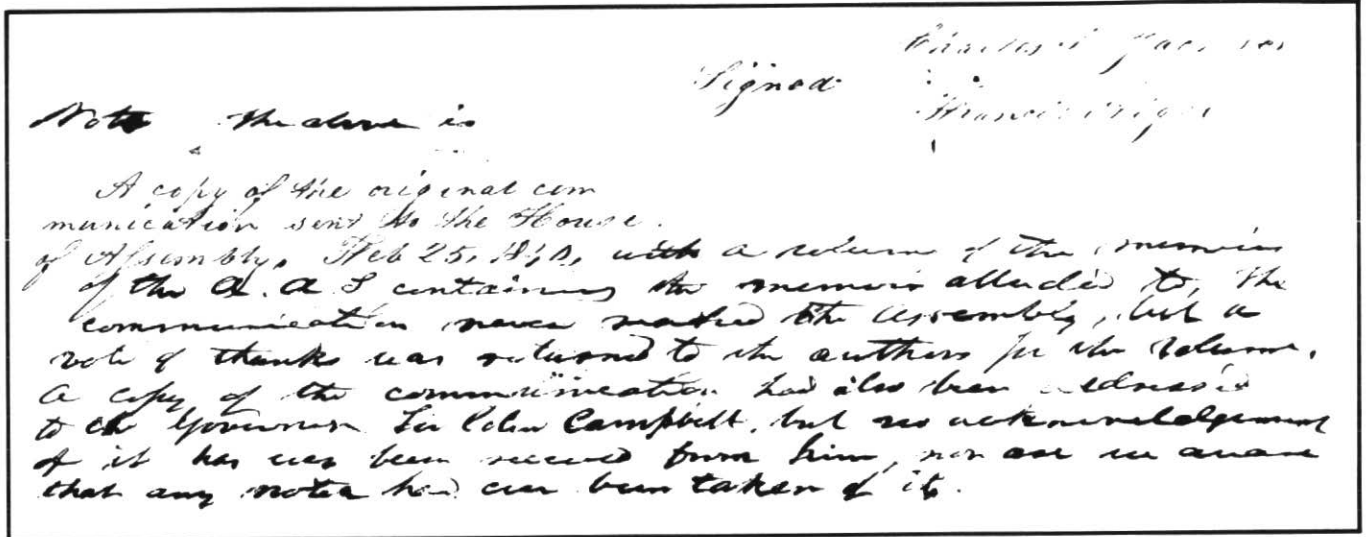 Charles T Jackson
Signed
Francis Alger
Note the above is
A copy of the original com
munication sent to the House
of Assembly, Feb 25, with a volume of the memoirs
of the A. A S containing the memoir alluded to, the
communication never reached the Assembly, but a
vote of thanks was returned to the authors for the volume.
A copy of the communication had also been addressed
to the Governor Sir Colin Campbell, but no acknowledgement
of it has ever been received from him, nor are we aware
that any notice had ever been taken of it.